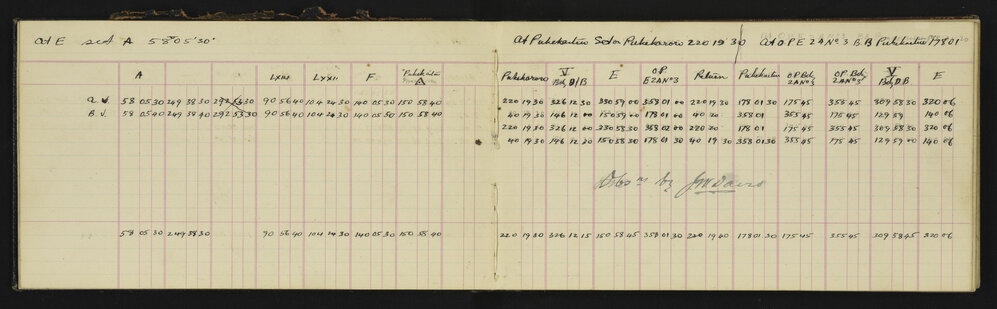 at E set A 58° 05' 30"
A LXIII LXXII F Pukekaitu △
A.V. 58 05 30 249 38 30 90 56 40 104 24 30 140 05 30 150 58 40
B.V. 58 05 40 249 38 40 292 53 30 90 56 40 104 24 30 140 05 50 150 58 40
58 05 30 249 38 30 90 56 40 104 24 30 140 05 30 150 58 40
At Pukekaitu Set on Pukekaroro 220 19 30 At O P E 2 A No 3 B B Pukekaitu 178 01
Pukekaroro V Bdy D/B E O.P. E 2A No 3 Return Pukekaitu O.P. Bdy 2A No 3 O.P. Bdy 2A No 3 V Bdy D.B E
220 19 30 326 12 30 330 59 00 358 01 00 220 19 30 178 01 30 175 45 355 45 309 58 30 320 06
40 19 30 146 12 00 150 59 00 178 01 00 40 20 358 01 355 45 175 45 129 59 140 06
220 19 30 326 12 30 330 58 30 358 02 00 220 20 178 01 175 45 355 45 309 58 30 320 06
40 19 30 146 12 20 150 58 30 178 01 30 40 19 30 358 01 30 355 45 175 45 129 59 00 140 06
Obs n by
220 19 30 326 12 15 150 58 45 358 01 30 220 19 40 178 01 30 175 45 355 45 309 58 45 320 06